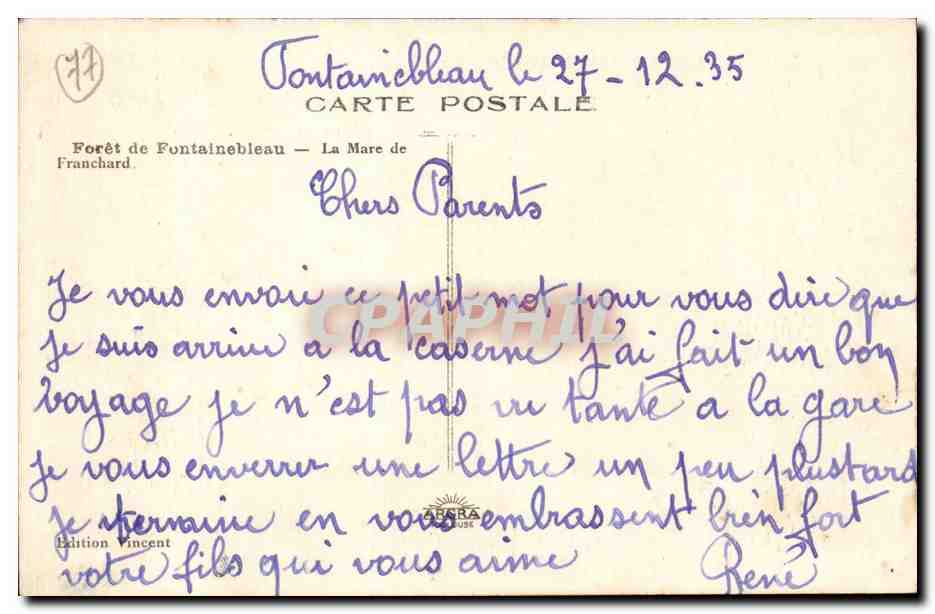 77
Fontainebleau le 27-12.35
CARTE POSTALE
Forêt de Fontainebleau — La Mare de
Franchard
Chers Parents
Je vous envoie ce petit mot pour vous dire que
CPAPHIL
je suis arrive a la caserne j'ai fait un bon
voyage je n'est pas vu tante a la gare
je vous enverrer une lettre un peu plustard
je termine en vous embrassent bien fort
Edition Vincent
votre fils qui vous aime René